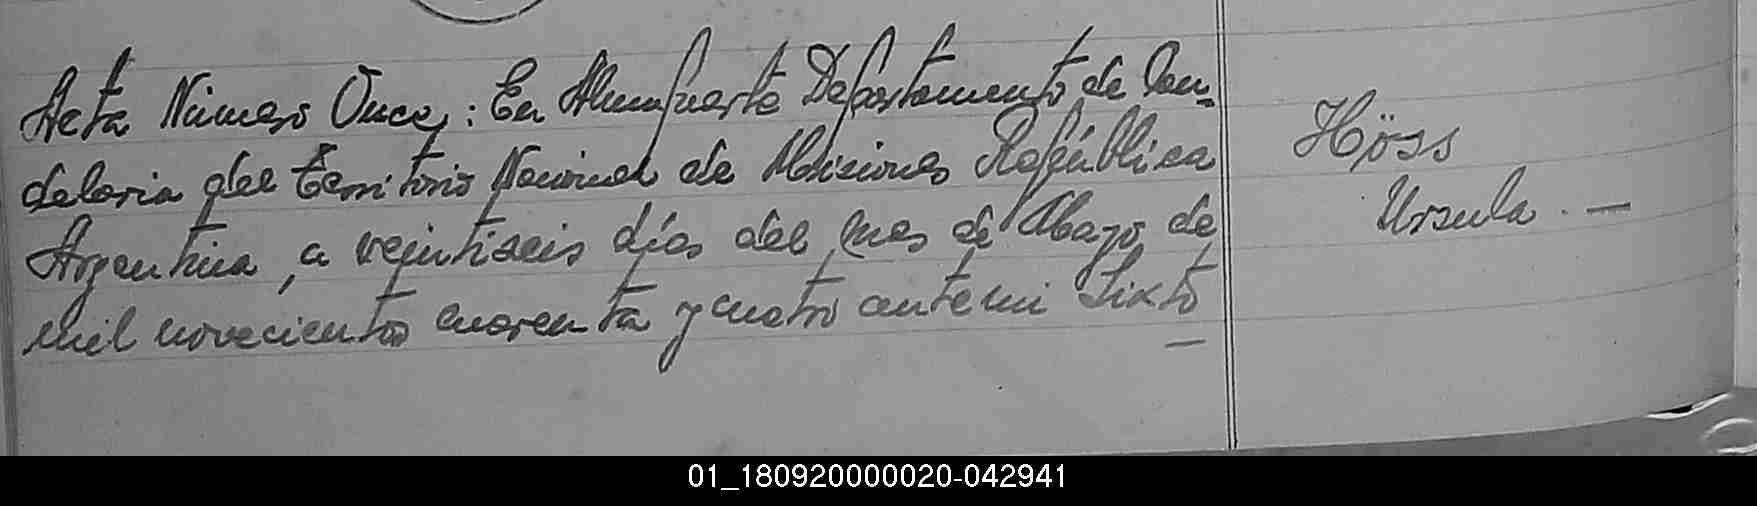 Acta Número Once; En Alumfuerte Departamento de Can-
delaria del Territorio Nacional de Misiones República
Argentina, a veintiseis días del mes de Mayo de
mil novecientos cuarenta y cuatro ante mi Sixto
Höss
Ursula. —
01_180920000020-042941